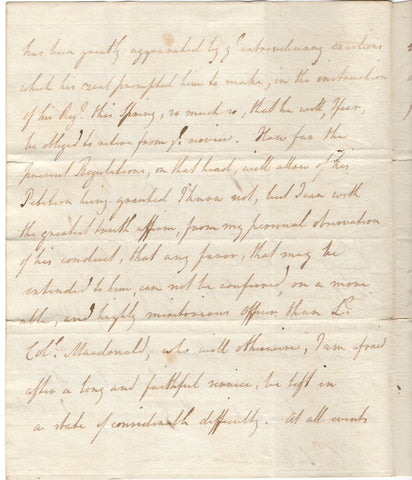 has been greatly aggravated by yᵉ extraordinary exertions
which his zeal prompted him to make, in the instruction
of his Regᵗ this Spring, so much so, that he will, I fear,
be obliged to retire from yᵉ service. How far the
present Regulations, on that head, will allow of his
Petition being granted I know not, but I can with
the greatest truth affirm, from my personal observation
of his conduct, that any favor, that may be
extended to him, can not be conferred, on a more
able, and highly meritorious officer, than Lᵗ
Colˡ Macdonald, who will otherwise, I am afraid
after a long and faithful service, be left in
a state of considerable difficulty. At all events